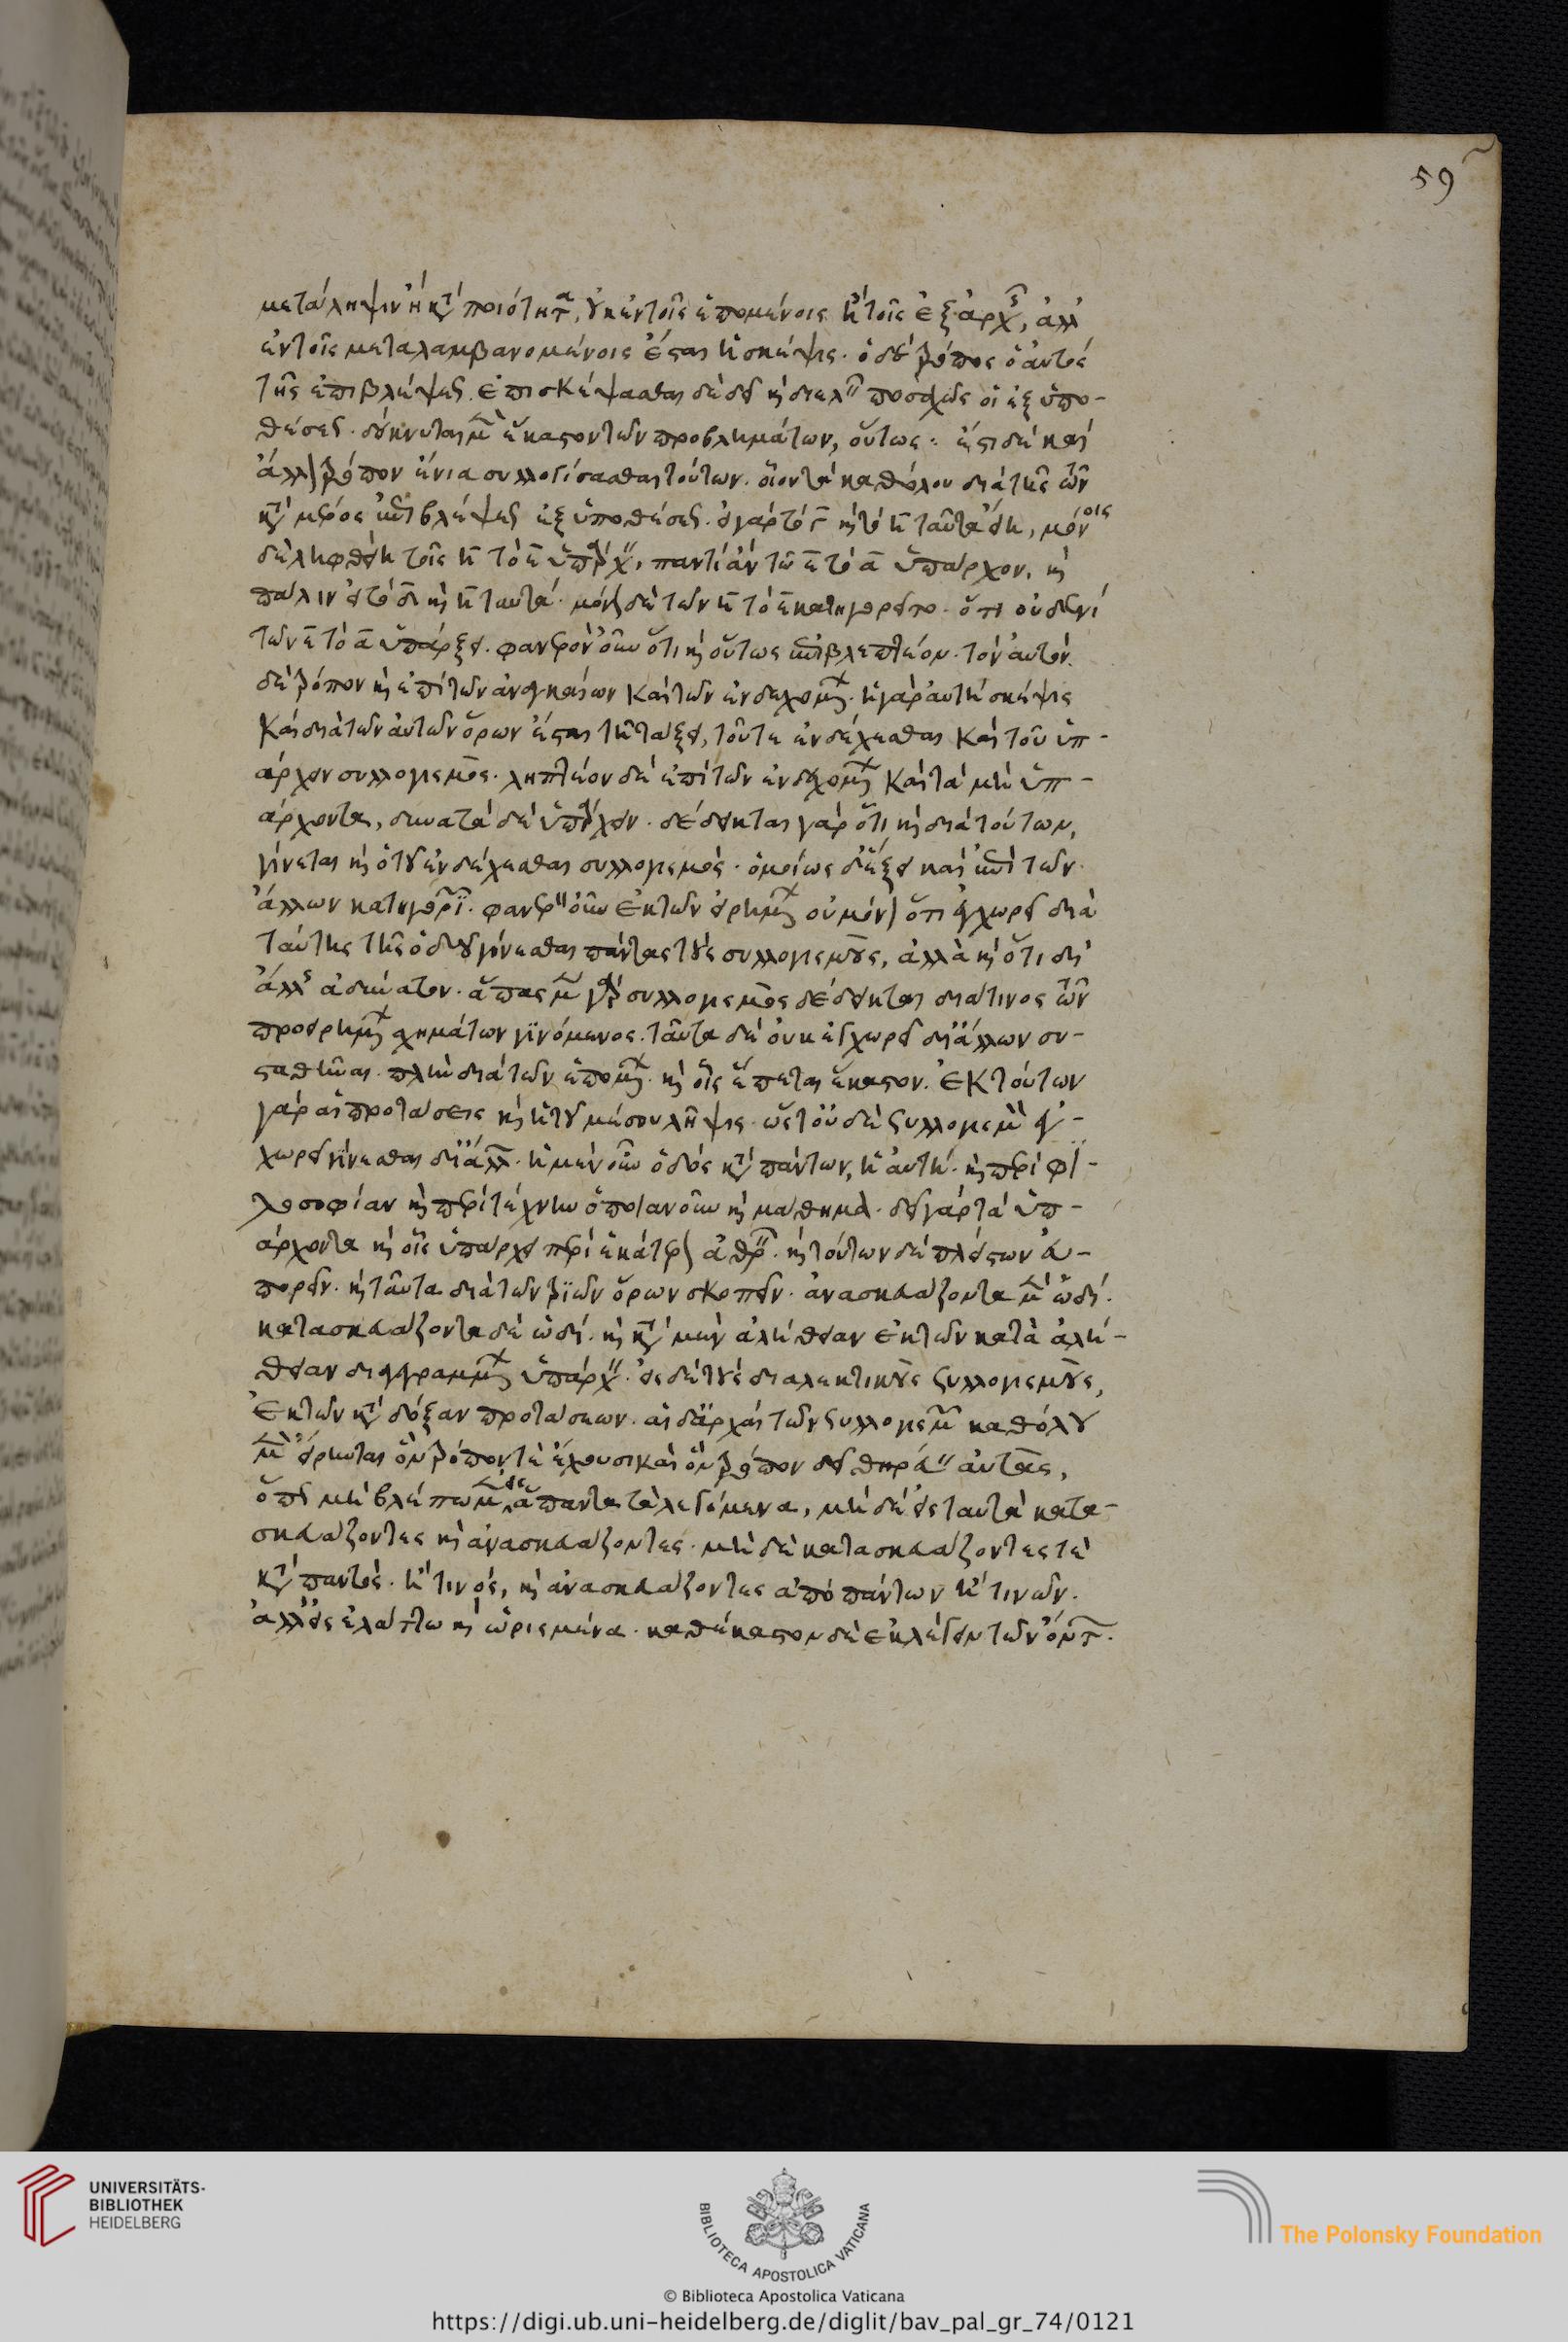 μετάληψιν ἢ κατὰ ποιότητα, οὐκ ἐν τοῖς ἑπομένοις ἢ τοῖς ἐξ ἀρχῆς, ἀλλ'
ἐν τοῖς μεταλαμβανομένοις ἔσται ἡ σκέψις. ὁ δὲ τρόπος ὁ αὐτὸς
τῆς ἐπιβλέψεως. ἐπισκέψασθαι δὲ δεῖ καὶ διελεῖν ποσαχῶς οἱ ἐξ ὑπο-
θέσεως. δείκνυται μὲν ἕκαστον τῶν προβλημάτων, οὕτως. ἔστι δὲ καὶ
ἄλλον τρόπον ἔνια συλλογίσασθαι τούτων. οἷον τὰ καθόλου διὰ τῆς τῶν
κατὰ μέρος ἐπιβλέψεως ἐξ ὑποθέσεως. εἰ γὰρ τὸ γ καὶ τὸ η ταῦτα εἴη, μόνοις
δὲ ληφθείη τοῖς η τὸ ε ὑπάρχειν, παντὶ ἂν τῷ ε τὸ α ὑπάρχοι. καὶ
πάλιν εἰ τὸ δ καὶ η ταυτά. μόνων δὲ τῶν η τὸ ε κατηγοροῖτο. ὅτι οὐδενὶ
τῶν ε τὸ α ὑπάρξει. φανερὸν οὖν ὅτι καὶ οὕτως ἐπιβλεπτέον. τὸν αὐτὸν
δὲ τρόπον καὶ ἐπὶ τῶν ἀναγκαίων καὶ τῶν ἐνδεχομένων. ἡ γὰρ αὐτὴ σκέψις
καὶ διὰ τῶν αὐτῶν ὅρων ἔσται τῇ τάξει, τοῦ τε ἐνδέχεσθαι καὶ τοῦ ὑπ-
άρχειν συλλογισμός. ληπτέον δὲ ἐπὶ τῶν ἐνδεχομένων καὶ τὰ μὴ ὑπ-
άρχοντα, δυνατὰ δὲ ὑπάρχειν. δέδεικται γὰρ ὅτι καὶ διὰ τούτων,
γίνεται καὶ ὁ τοῦ ἐνδέχεσθαι συλλογισμός. ὁμοίως δ' ἕξει καὶ ἐπὶ τῶν
ἄλλων κατηγοριῶν. φανερὸν οὖν ἐκ τῶν εἰρημένων οὐ μόνον ὅτι ἐγχωρεῖ διὰ
ταύτης τῆς ὁδοῦ γίνεσθαι πάντας τοὺς συλλογισμούς, ἀλλὰ καὶ ὅτι δι'
ἄλλης ἀδύνατον. ἅπας μὲν γὰρ συλλογισμὸς δέδεικται διά τινος τῶν
προειρημένων σχημάτων γινόμενος. ταῦτα δὲ οὐκ ἐγχωρεῖ δι' ἄλλων συ-
σταθῆναι. πλὴν διὰ τῶν ἑπομένων. καὶ οἷς ἕπεται ἕκαστον. ἐκ τούτων
γὰρ αἱ προτάσεις καὶ ἡ τοῦ μέσου λῆψις. ὥστ' οὐδὲ συλλογισμὸν ἐγ-
χωρεῖ γίνεσθαι δι' ἄλλων. ἡ μὲν οὖν ὁδὸς κατὰ πάντων, ἡ αὐτή. καὶ περὶ φι-
λοσοφίαν καὶ περὶ τέχνην ὁποίαν οὖν καὶ μάθημα. δεῖ γὰρ τὰ ὑπ-
άρχοντα καὶ οἷς ὑπάρχει περὶ ἑκάτερον ἀθρεῖν. καὶ τούτων δὲ πλείστων εὐ-
πορεῖν. καὶ ταῦτα διὰ τῶν τριῶν ὅρων σκοπεῖν. ἀνασκευάζοντα μὲν ὡδί.
κατασκευάζοντα δὲ ὡδί. καὶ κατὰ μὲν ἀλήθειαν ἐκ τῶν κατὰ ἀλή-
θειαν διαγεγραμμένων ὑπάρχειν. εἰς δὲ τοὺς διαλεκτικοὺς συλλογισμούς,
ἐκ τῶν κατὰ δόξαν προτάσεων. αἱ δ' ἀρχαὶ τῶν συλλογισμῶν καθόλου
μὲν εἴρηνται ὃν τρόπον τὲ ἔχουσι καὶ ὃν τρόπον δεῖ θηρᾶν αὐτάς,
ὅπως μὴ βλέπωμεν εἰς ἅπαντα τὰ λεγόμενα, μὴ δὲ εἰς ταυτὰ κατα-
σκευάζοντες καὶ ἀνασκευάζοντες. μὴ δὲ κατασκευάζοντές τε
κατὰ παντός. ἢ τινός, καὶ ἀνασκευάζοντες ἀπὸ πάντων ἢ τινῶν.
ἀλλ' εἰς ἐλάττω καὶ ὡρισμένα. καθέκαστον δὲ ἐκλέγειν τῶν ὄντων.
59
UNIVERSITÄTS-
BIBLIOTHEK
HEIDELBERG
BIBLIOTECA APOSTOLICA VATICANA
The Polonsky Foundation
© Biblioteca Apostolica Vaticana
https://digi.ub.uni-heidelberg.de/diglit/bav_pal_gr_74/0121